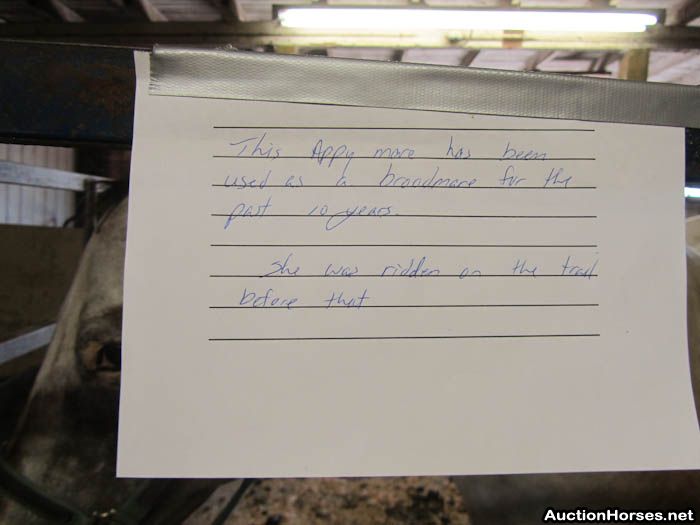 This Appy mare has been
used as a broodmare for the
past 10 years.
She was ridden on the trail
before that
AuctionHorses.net